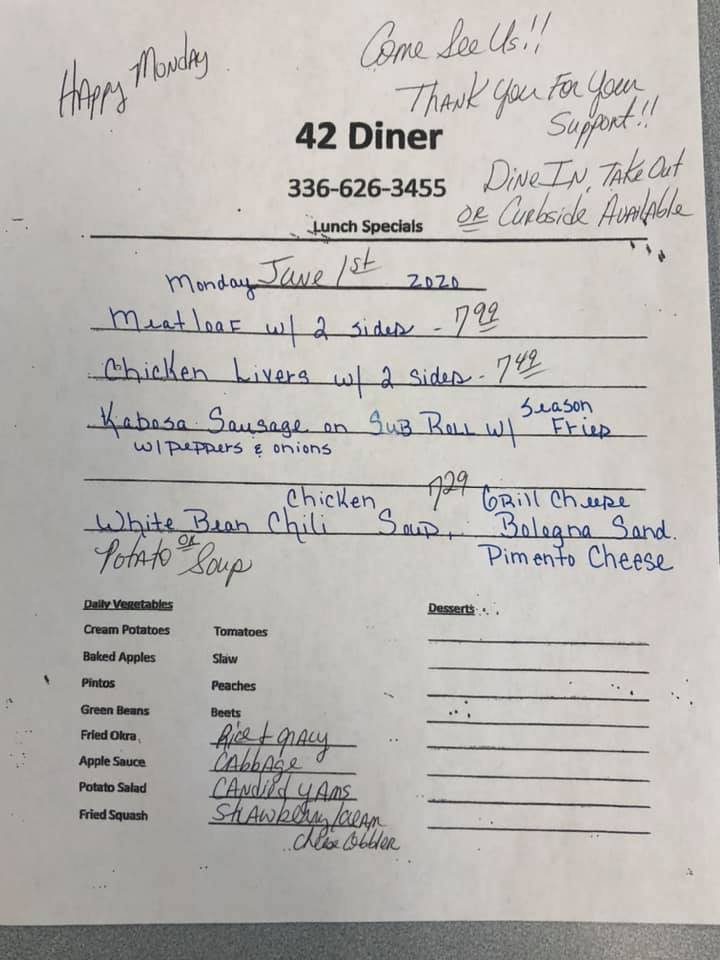 Happy Monday
Come See Us!!
Thank You For Your
Support!!
42 Diner
336-626-3455
Dine In, Take Out
or Curbside Available
Lunch Specials
Monday June 1st 2020
Meatloaf w/ 2 sides - 7.99
Chicken Livers w/ 2 sides - 7.49
Kabosa Sausage on Sub Roll w/ Season Fries
w/ peppers & onions
7.29
White Bean Chicken Chili Soup, Grill Cheese
or Potato Soup Bologna Sand.
Pimento Cheese
Daily Vegetables
Desserts
Cream Potatoes Tomatoes
Baked Apples Slaw
Pintos Peaches
Green Beans Beets
Fried Okra Rice & gravy
Apple Sauce Cabbage
Potato Salad Candied yams
Fried Squash Strawberry/cream
cheese cobbler